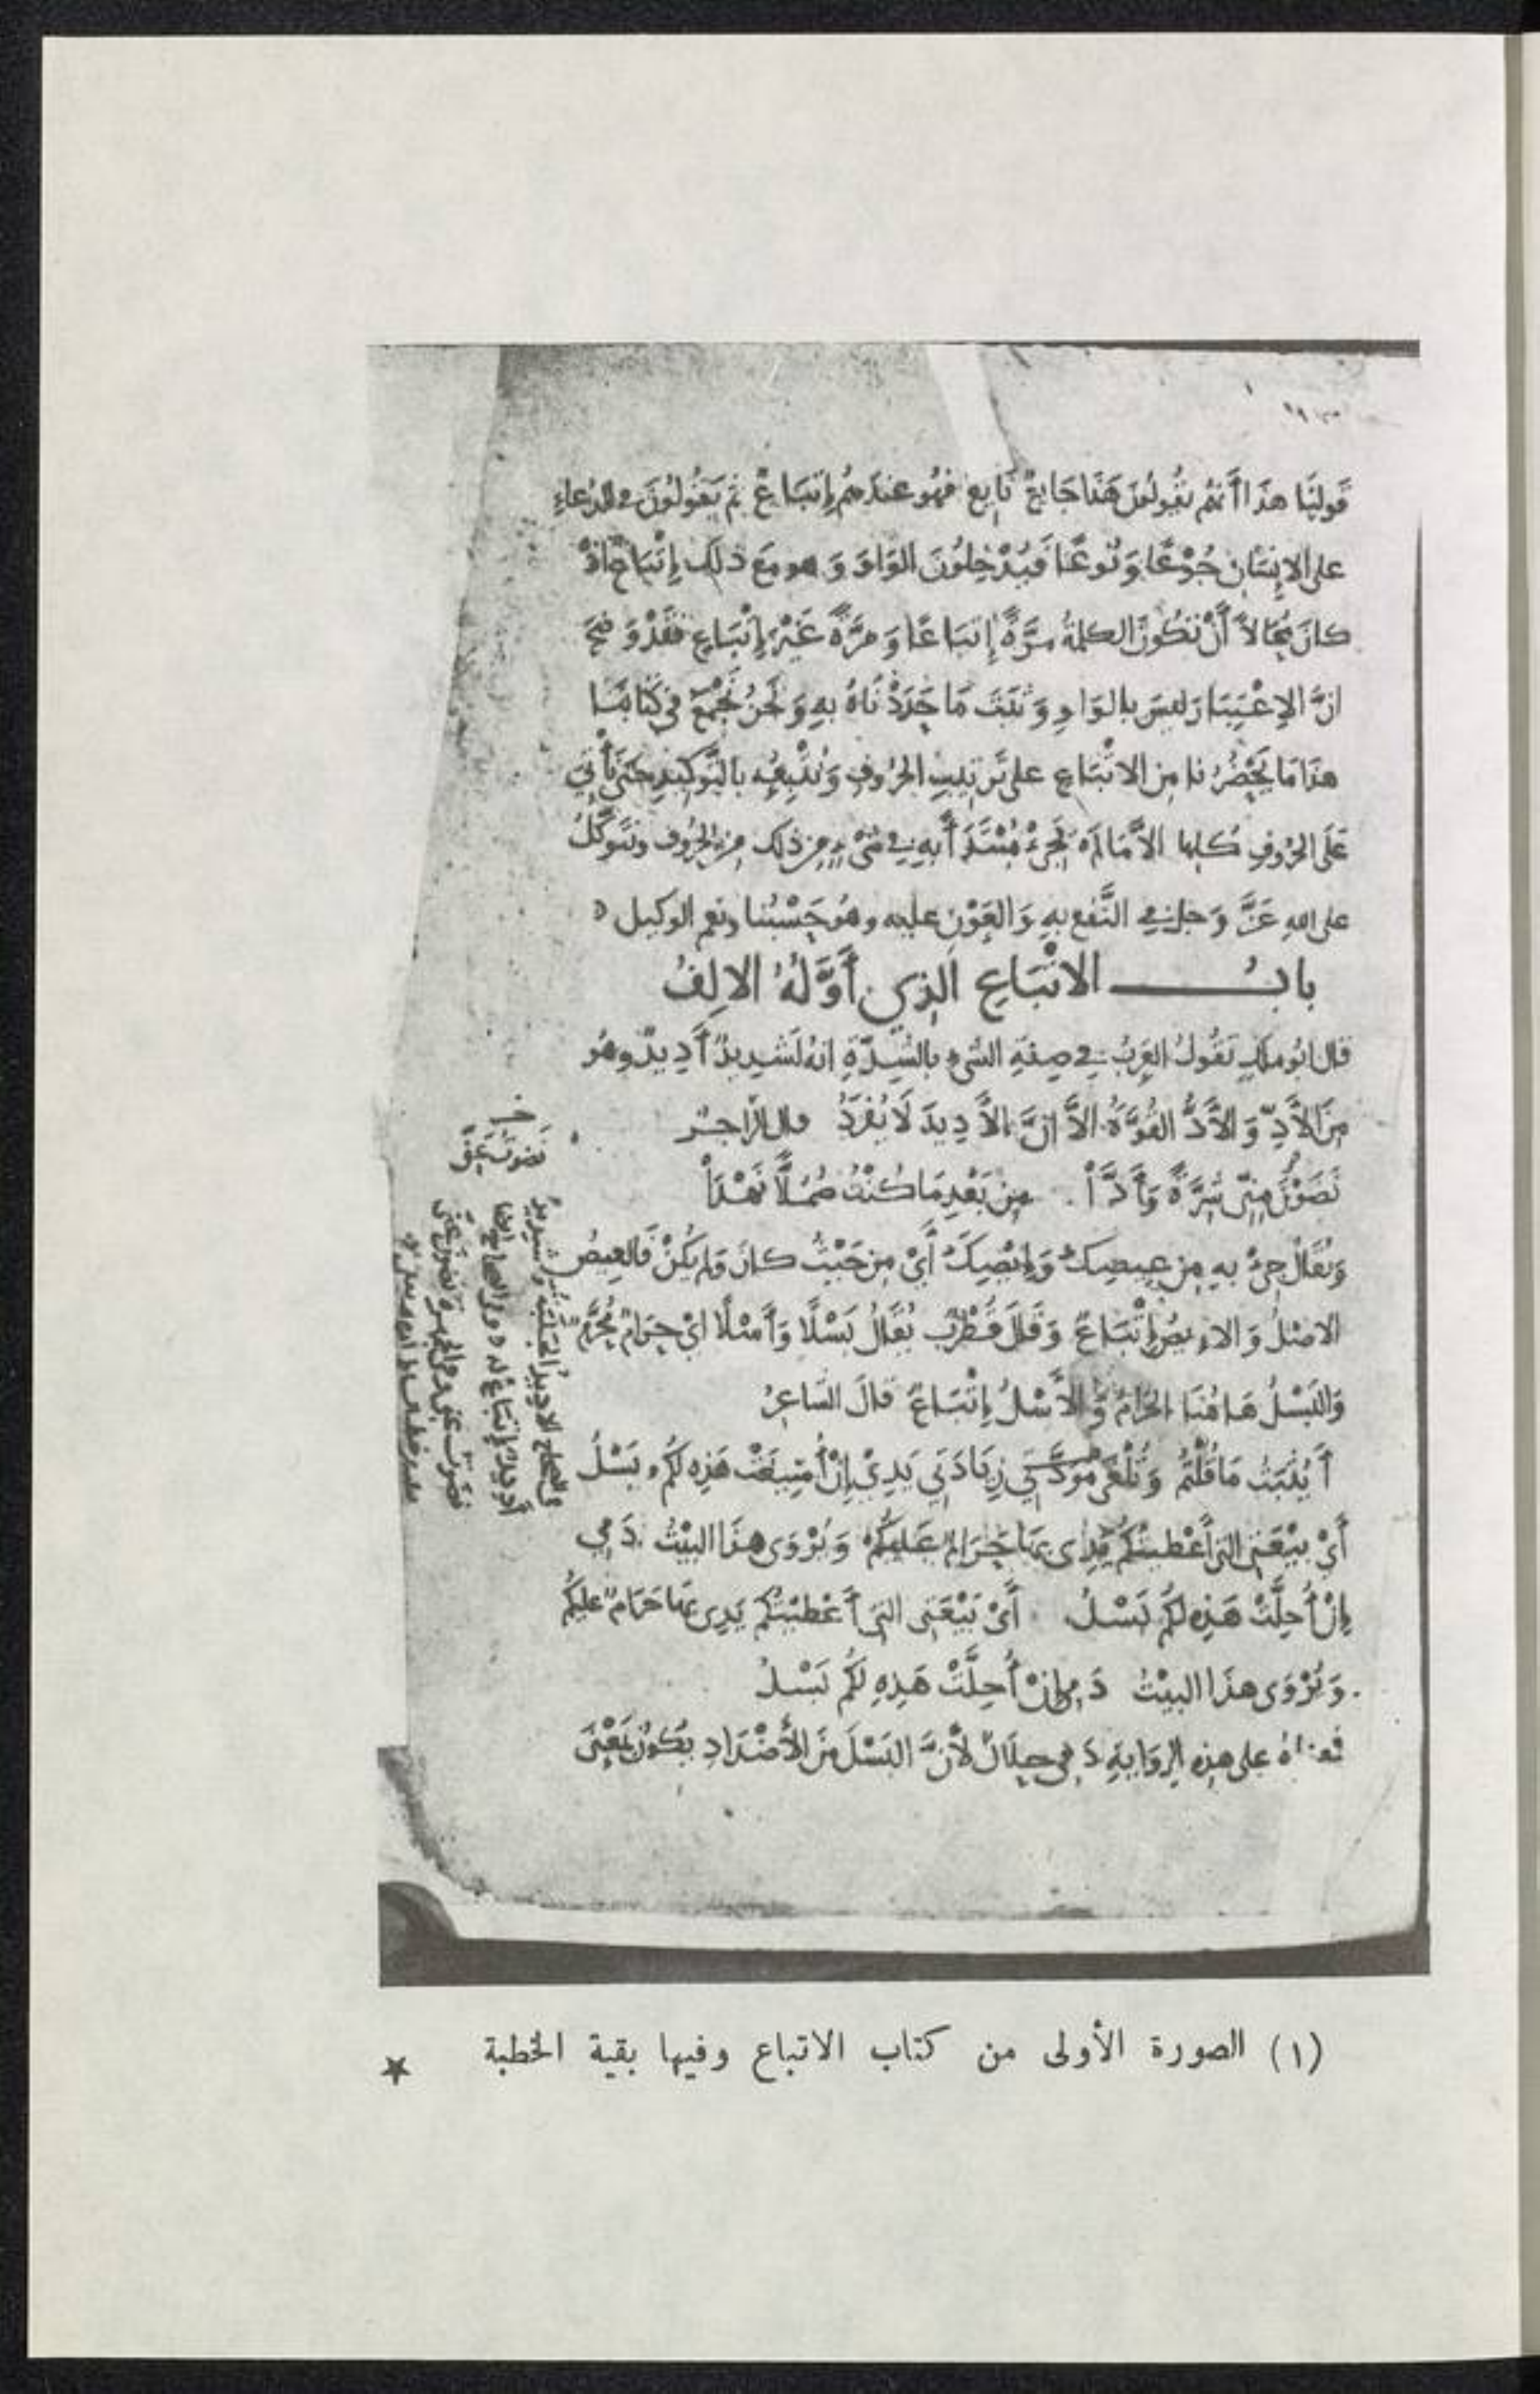 قَولِنَا هذَا أَنَّهُم يَقُولُونَ هَذَا جَايعٌ نَايع فهُو عندَهُم إِتبَاعٌ ثم يَقُولُونَ في الدُعاءِ
على الإِنسَان جُوْعًا وَنُوعًا فَيُدْخِلُونَ الوَاوَ وَهو مَع ذلِكَ إِتْبَاعٌ إِذْ
كانَ مُحَالاً أَنْ تَكُونَ الكلمةُ مرَّةً إِتبَاعًا وَمرَّةً غَيْرَ إِتْبَاعٍ فَقَدْ وَضحَ
انَّ الإِعْتِبَارَ ليسَ بالوَاوِ وَثَبَتَ مَا حَدَدْنَاهُ بهِ وَنَحْنُ نَجْمَعُ في كتَابنَا
هذا مَا يَحْضُرُنا مِن الاتْبَاعِ على تَرتِيبِ الحُرُوفِ وَنُتْبِعُه بالتَّوكِيدِ حتى نأْتي
عَلَى الحُرُوفِ كُلِها الاَّ مَا لَم يَجِئْ مُبْتَدَأً بهِ في شىْءٍ من ذلك من الحُروف ونتوَكَّلُ
على اللهِ عَزَّ وَجل في النَّفعِ بهِ وَالعَوْنِ عليه وهُو حَسْبُنا ونعم الوكيل
بابُ الاتْبَاعِ الَّذِي أَوَّلُهُ الالِفُ
قال ابُو ملكٍ تقُولُ العَربُ في صِفةِ الشىءِ بالشِّدَّةِ انهُ لَشَدِيدٌ أَدِيدٌ وهُو
مِنَ الأَدِّ وَالأَدُّ القُوَّةُ الاَّ انَّ الأَدِيدَ لَا يُفرَدُ قال الرَّاجز
نَضَوْنَ مِنّى شِرَّةً وَأَدَّا مِن بَعْدِ مَا كُنْتُ صُمُلًّا نَهْدَا
وَيُقالُ جِئْ بهِ مِن عِيصِكَ وَإِيْصِكَ أَيْ مِن حَيْثُ كانَ وَلم يكُنْ فَالعِيصُ
الاصْلُ وَالاِيصُ إِتْبَاعٌ وَقَالَ قُطْرُب يُقَالُ بَسْلًا وَأَسْلًا ايْ حَرَامٌ مُحَرَّمٌ
وَالبَسْلُ هَاهُنَا الحَرَامُ وَالأَسْلُ إِتْبَاعٌ قالَ الشاعِرُ
أَيَثْبُتُ مَا قُلْتُمْ وَتُلْغَى زِيَادَتي يَدِيْ إِنْ أُسِيغَتْ هَذِه لَكُم بَسْلُ
أَيْ بَيْعَتِى التى أَعْطيتُكُم يَدِى بهَا حَرَامٌ عَليكُم وَيُرْوَى هذَا البَيْتُ دَمِي
إِنْ أُحِلَّتْ هَذِه لكُمُ بَسْلُ أَىْ بَيْعَتِى التى أَعْطَيْتكُم يَدِى بهَا حَرَامٌ عليكُم
وَيُرْوَى هذَا البيْتُ دَمِى إِنْ أُحِلَّتْ هَذِهِ لكُم بَسْلُ
فمعناهُ على هذِه الرِوَايَةِ دَمِى حلَالٌ لأَنَّ البَسْلَ مِنَ الأَضْدَادِ يكُونُ بمَعْنى
(١) الصورة الأولى من كتاب الاتباع وفيها بقية الخطبة ★